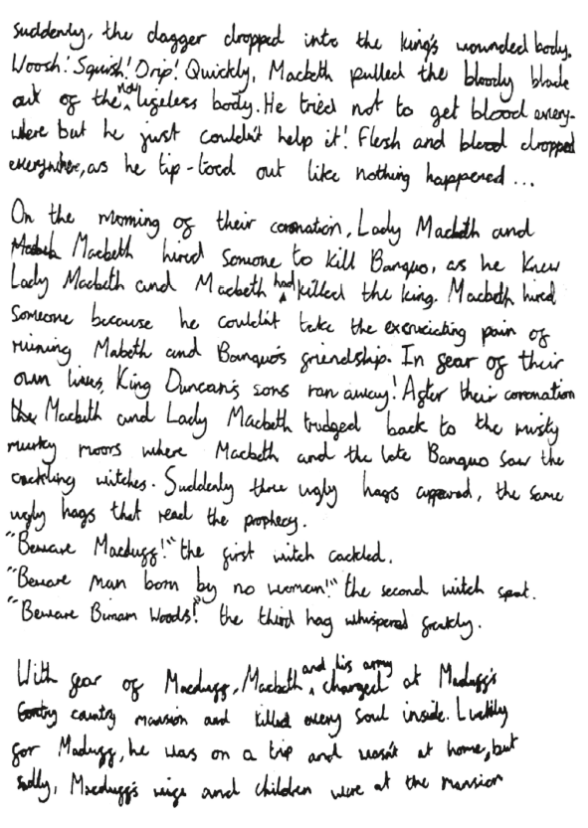 suddenly, the dagger dropped into the king's wounded body.
Woosh! Squish! Drip! Quickly, Macbeth pulled the bloody blade
out of the now lifeless body. He tried not to get blood every-
where but he just couldn't help it! Flesh and blood dropped
everywhere, as he tip-toed out like nothing happened ...
On the morning of their coronation, Lady Macbeth and
Macbeth hired someone to kill Banquo, as he knew
Lady Macbeth and Macbeth had killed the king. Macbeth hired
someone because he couldn't take the excruciating pain of
ruining Mabeth and Banquo's friendship. In fear of their
own lives, King Duncan's sons ran away! After their coronation
the Macbeth and Lady Macbeth trudged back to the misty
murky moors where Macbeth and the late Banquo saw the
cackling witches. Suddenly three ugly hags appeared, the same
ugly hags that read the prophecy.
"Beware Macduff!" the first witch cackled.
"Beware man born by no woman!" the second witch spat.
"Beware Birnam Woods!" the third hag whispered freakly.
With fear of Macduff, Macbeth and his army charged at Maduff's
country mansion and killed every soul inside. Luckily
for Maduff, he was on a trip and wasn't at home, but
sadly, Macduff's wife and children were at the mansion